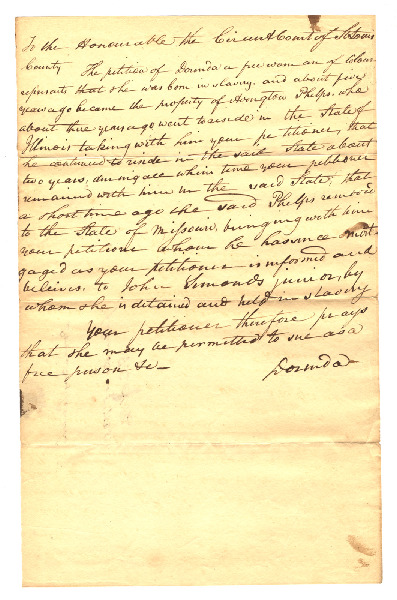 To the Honourable the Circuit Court of St Louis
County The petition of Dorinda a free woman of Colour
represents that she was born in slavery, and about five
years ago became the property of Avington Phelps, who
about three years ago went to reside in the State of
Illinois taking with him your petitioner, that
he continued to reside in the said State about
two years, during all which time your petitioner
remained with him in the said State; that
a short time ago the said Phelps removed
to the State of Missouri, bringing with him
your petitioner whom he has since mort
gaged as your petitioner is informed and
believes, to John Simonds junior, by
whom she is detained and held in slavery
Your petitioner therefore prays
that she may be permitted to sue as a
free person &c—
Dorinda